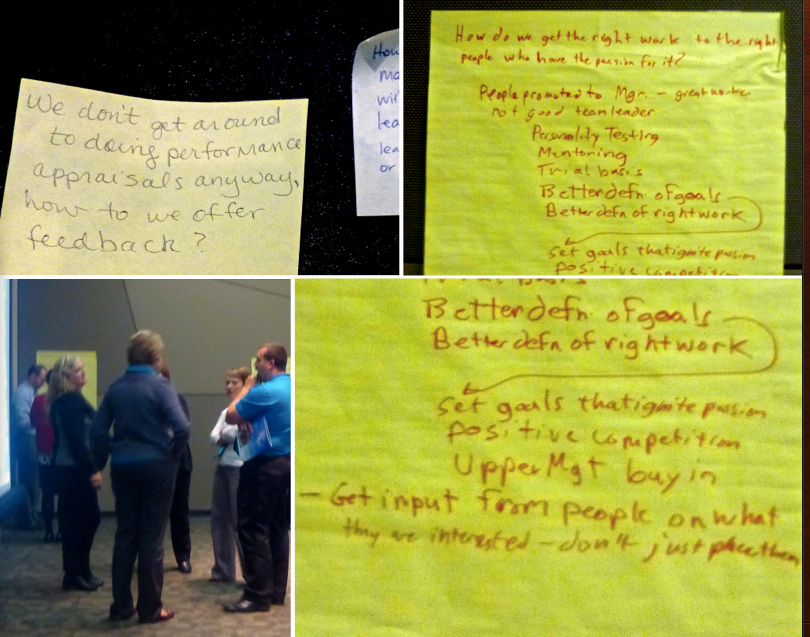 We don't get around
to doing performance
appraisals anyway,
how to we offer
feedback?
How
ma
wit
lea
lea
or
How do we get the right work to the right
people who have the passion for it?
People promoted to Mgr. - great worker
not good team leader
Personality Testing
Mentoring
Trial basis
Better defn of goals
Better defn of right work
set goals that ignite passion
positive competition
Better defn of goals
Better defn of right work
set goals that ignite passion
positive competition
Upper Mgt buy in
- Get input from people on what
they are interested - don't just place them